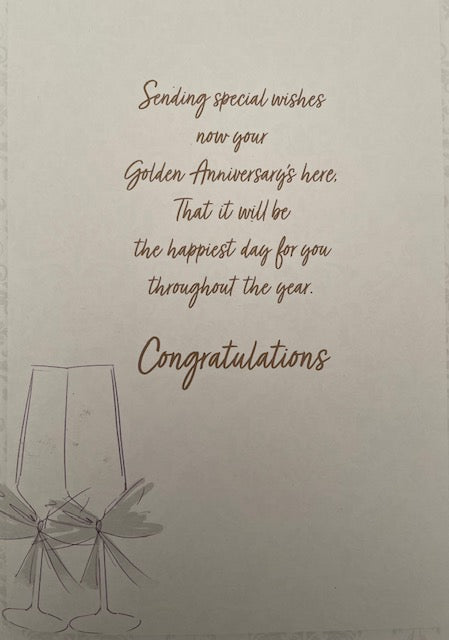 Sending special wishes
now your
Golden Anniversary's here.
That it will be
the happiest day for you
throughout the year.
Congratulations